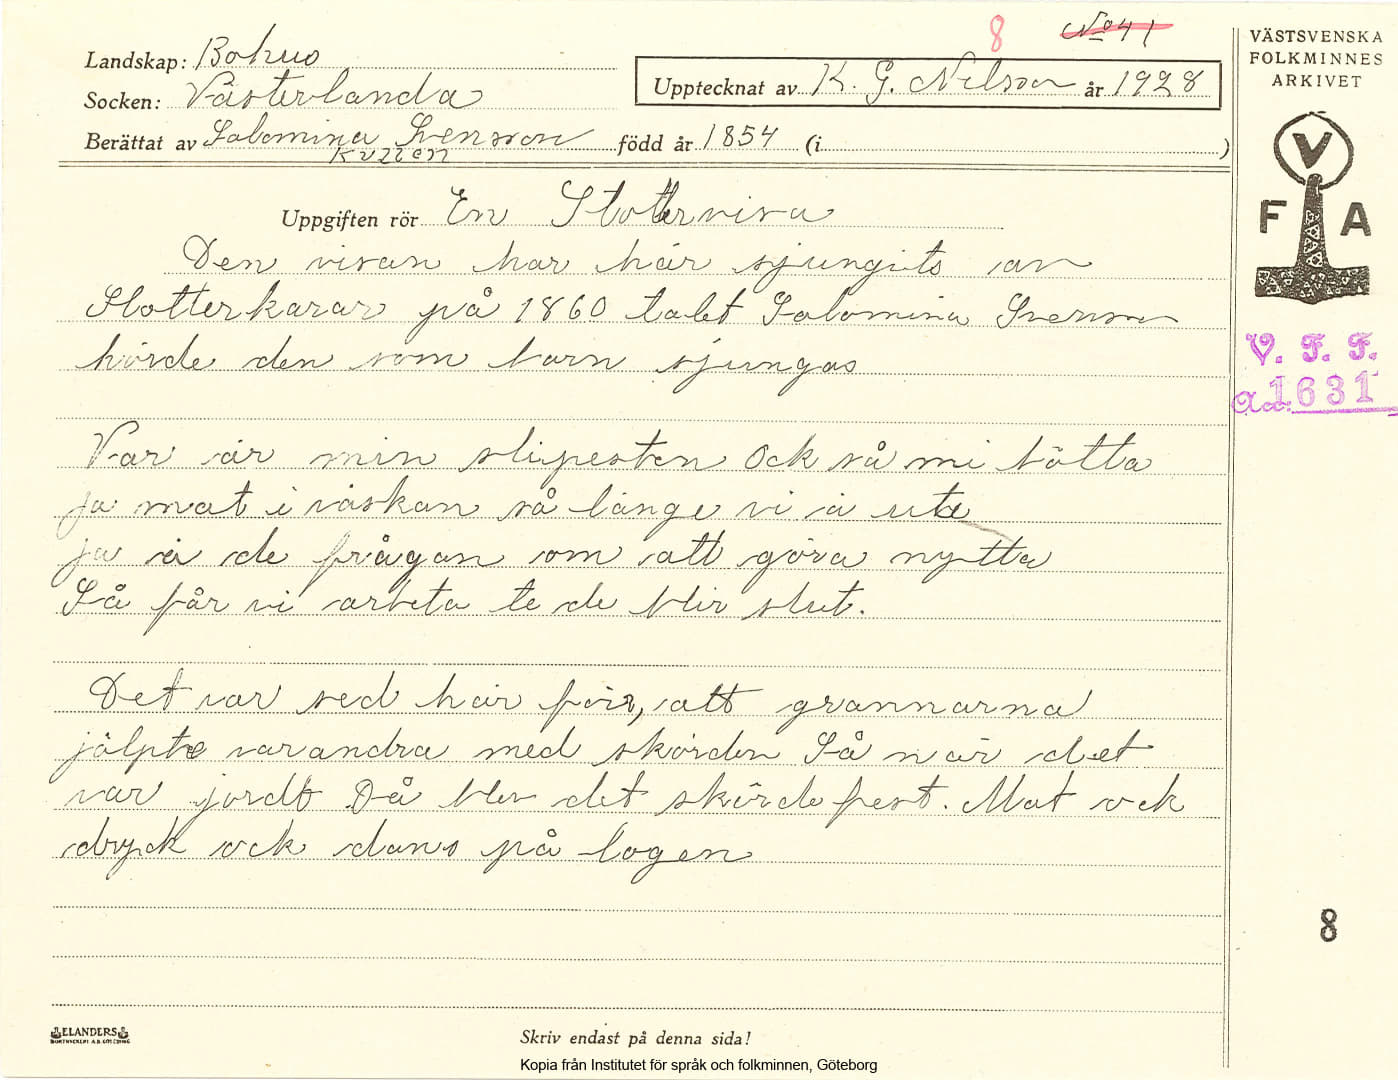 8 No 41
Landskap: Bohus
Socken: Västerlanda
Upptecknat av K. G. Nilsson år 1928
Berättat av Salomina Svensson född år 1854 (i )
Kullen
Uppgiften rör En Slottervisa
Den visan har här sjungits av
Slotterkarar på 1860 talet Salomina Svenson
hörde den som barn sjungas
Var är min slipesten Ock så mi bötta
ja mat i väskan så länge vi ä ute
ja ä de frågan om att göra nytta
Så får vi arbeta te de blir slut.
Det var sed här förr, att grannarna
jälpte varandra med skörden Så när det
var jordt Då blev det skördefest. Mat ock
dryck ock dans på logen
VÄSTSVENSKA
FOLKMINNES
ARKIVET
V
F A
V. F. F.
1631
8
ELANDERS
Skriv endast på denna sida!
Kopia från Institutet för språk och folkminnen, Göteborg